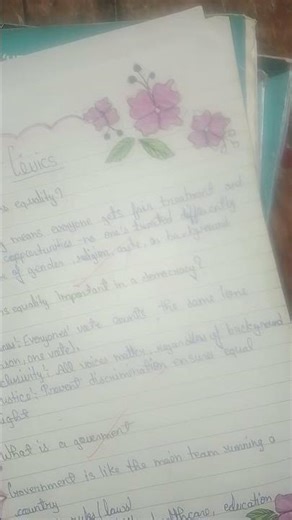 Civics
is equality?
means everyone gets fair treatment and
opportunities - no one's treated differently
of gender, religion, caste, or background
is equality important in a democracy?
Everyones' vote counts the same (one
son, one vote).
clusivity: All voices matter, regardless of background
ustice: Prevent discrimination ensure equal
ight
What is a government
Government is like the main team running a
country
(laws)
healthcare, education